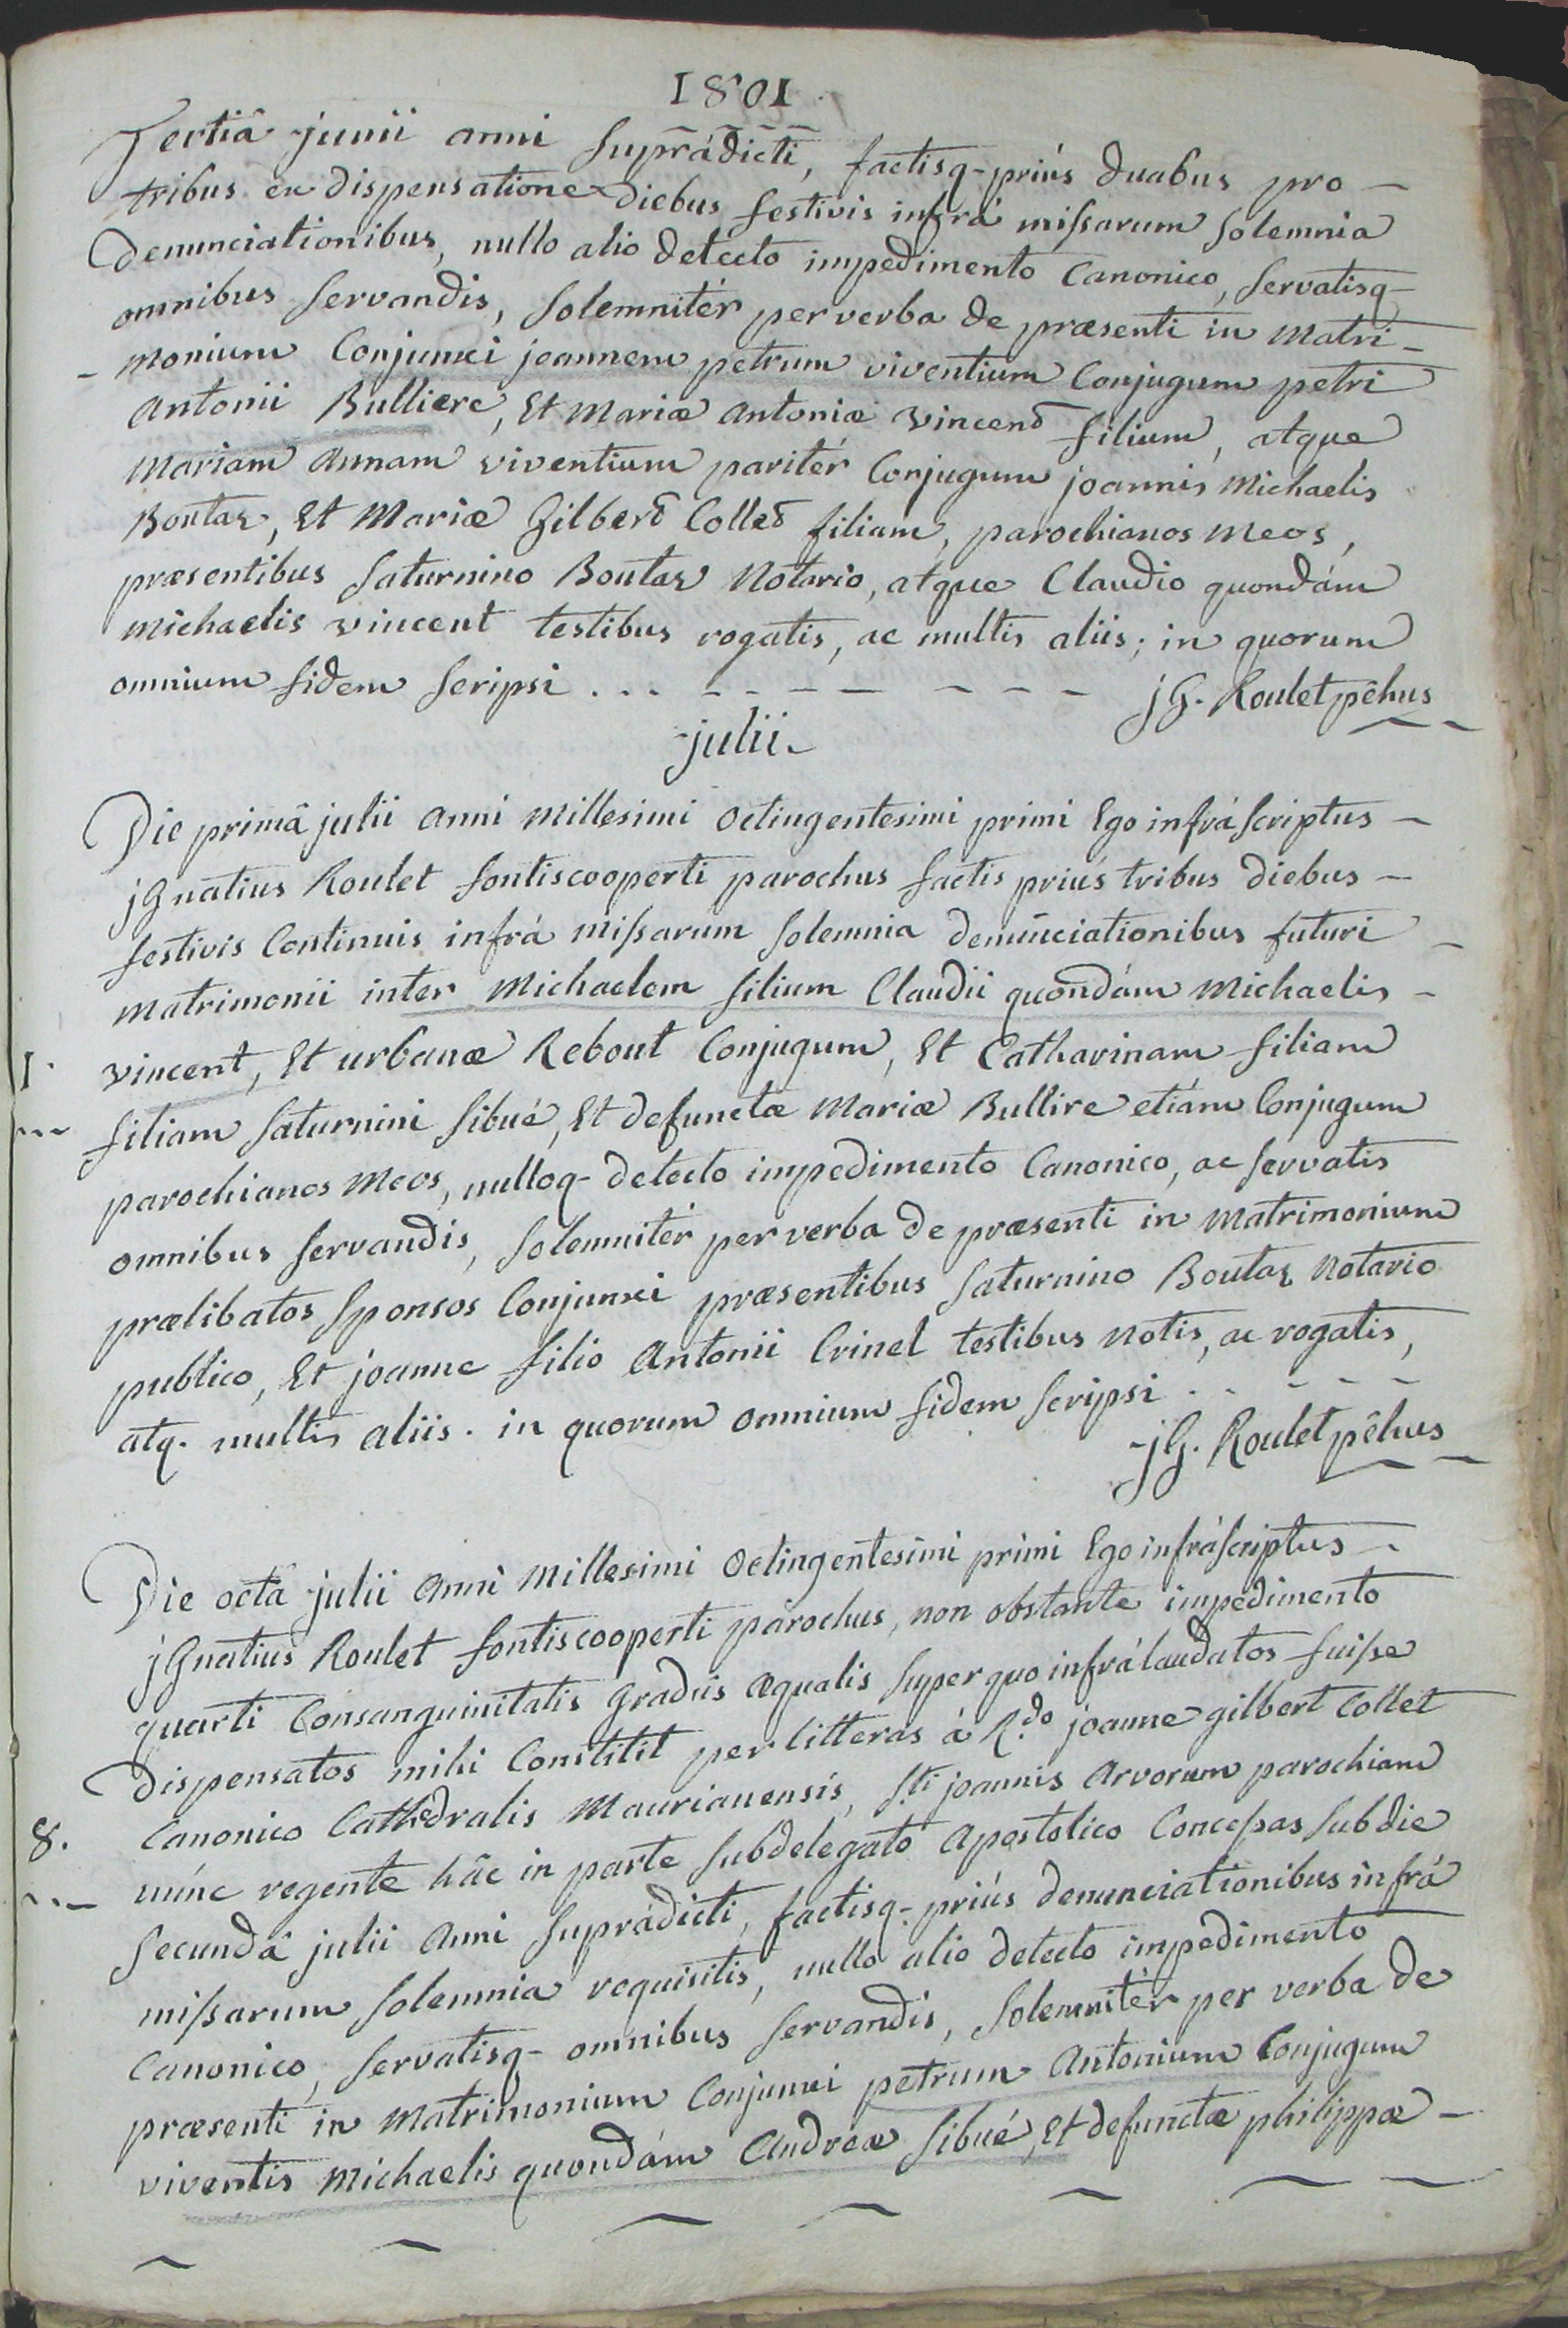 1801
Tertiâ junii anni suprádicti, factisq- priús duabus pro —
tribus ex dispensatione diebus festivis infrá missarum solemnia
denunciationibus, nullo alio detecto impedimento Canonico, servatisq-
omnibus servandis, solemnitér per verba de præsenti in Matri-
- monium Conjunxi joannem petrum viventium Conjugum petri
Antonii Bulliere, Et Mariæ Antoniæ vincend filium, atque
Mariam Annam viventium paritér Conjugum joannis Michaelis
Boutaz, Et Mariæ Gilberd Colled filiam, parochianos Meos,
præsentibus Saturnino Boutaz Notario, atque Claudio quondám
Michaelis vincent testibus rogatis, ac multis aliis; in quorum
omnium fidem scripsi . . . - - - - - - -
jG. Roulet pc̃hus
julii.
Die primâ julii Anni Millesimi octingentesimi primi Ego infráscriptus —
jGnatius Roulet fontiscooperti parochus factis priús tribus diebus —
festivis Continuis infrá missarum solemnia denunciationibus futuri -
Matrimonii inter Michaelem filium Claudii quondám Michaelis -
1. vincent, Et urbanæ Rebout Conjugum, Et Catharinam filiam
filiam Saturnini Sibué, Et defunctæ Mariæ Bullire etiám Conjugum
parochianos Meos, nulloq- detecto impedimento Canonico, ac servatis
omnibus servandis, solemnitér per verba de præsenti in Matrimonium
prælibatos sponsos Conjunxi præsentibus Saturnino Boutaz Notario
publico, Et joanne filio Antonii Crinel testibus Notis, ac rogatis,
atq. multis aliis. in quorum omnium fidem scripsi . . - - -
jG. Roulet pc̃hus
Die octâ julii Anni Millesimi octingentesimi primi Ego infráscriptus -
jGnatius Roulet fontiscooperti parochus, non obstante impedimento
quarti Consanguinitatis gradûs æqualis super quo infrálaudatos fuisse
dispensatos mihi Constitit per litteras á R.do joanne gilbert Collet
8. Canonico Cathedralis Maurianensis, S.ti joannis Arvorum parochiam
núnc regente hâc in parte subdelegato Apostolico Concessas sub die
secundâ julii Anni suprádicti, factisq- priús denunciationibus infrá
missarum solemnia requisitis, nullo alio detecto impedimento
Canonico, servatisq- omnibus servandis, solemnitér per verba de
præsenti in Matrimonium Conjunxi petrum Antonium Conjugum
viventis Michaelis quondám Andreæ Sibué, Et defunctæ philippæ -